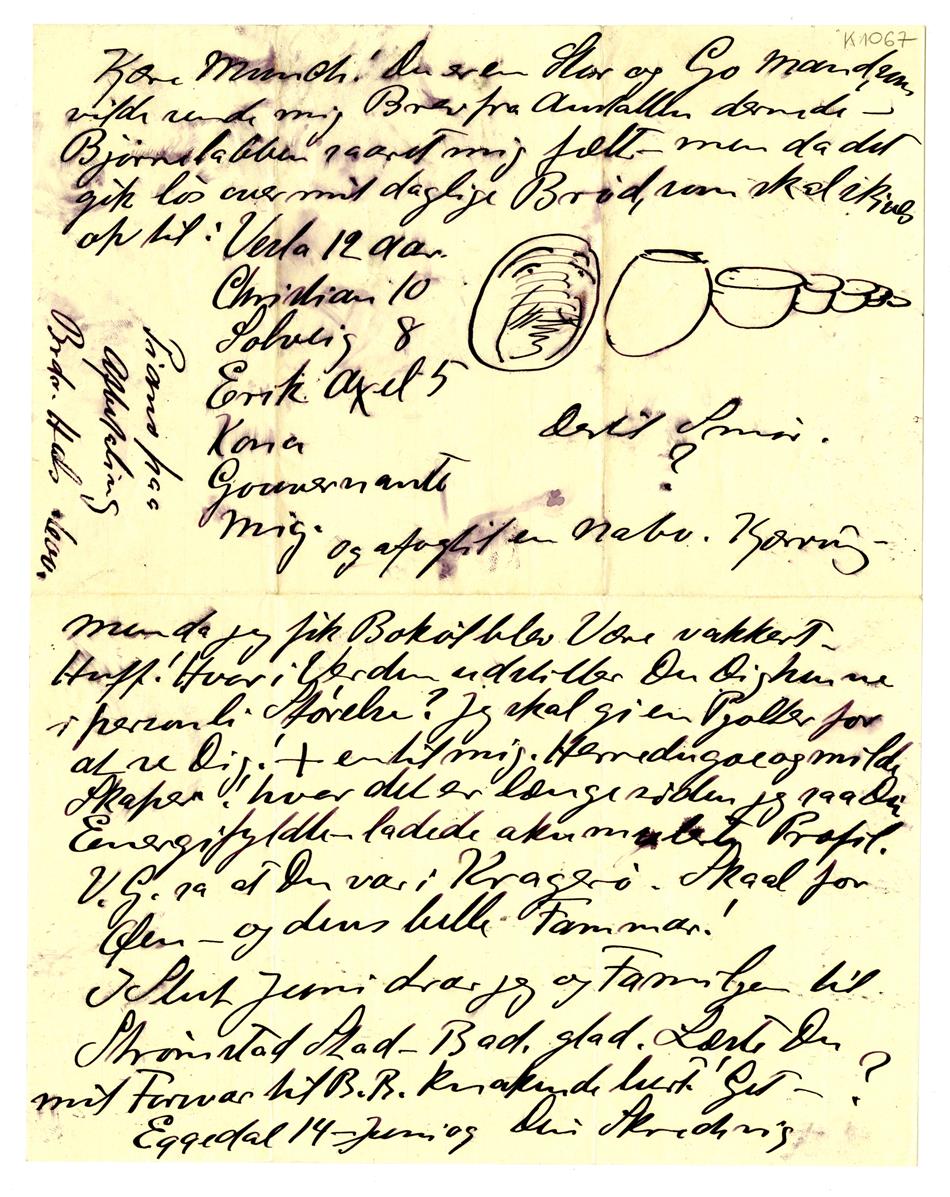 K 1067
Kjære Munch! Du er en Stor og Go Mand, som
vilde sende mig Brev fra Anstalten dernede –
Bjørnelabben saaret mig fælt – men da det
gik løs over mit daglige Brød, som skal skives
op til: Vesla 12 aar.
Christian 10
Solveig 8
Erik Axel 5
Kona
Gouvernante
Mig.
og afogtil en Nabo. Kjærring –
Dertil Smør.
?
Piano paa
Afbetaling
Brdr. Hals
men da jeg fik Bokøl blev Være vakkert –
Huff! Hvor i Verden udstiller Du Dig henne
i personli Størelse? Jeg skal gi en Pjolter for
at se Dig! + en til mig. Herredugoe og milde
Skaper! hvor det er længe siden jeg saa Din
Energifyldte – ladede akumulerte Profil.
V.G. sa at Du var i Kragerø. Skaal for
Øen – og dens lille Fammar!
I Slut Juni drar jeg og Familjen til
Strømstad Stad – Bad. glad. Læste Du
mit Forsvar til B.B. Knakende lurt! Get – ?
Eggedal 14 – Juni 09 Din Skredsvig